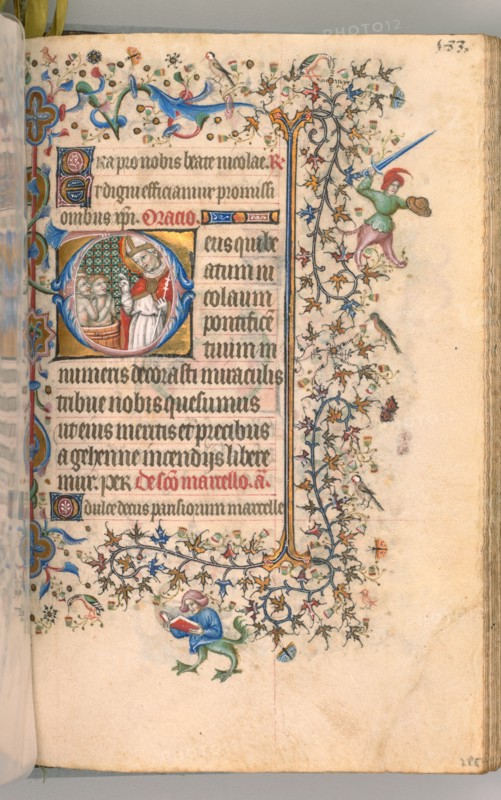 533.
Ora pro nobis beate nicolae. R
Et digni efficiamur promissi
onibus xpi. Oratio.
Deus qui be
atum ni
colaum
pontificē
tuum in
numeris decorasti miraculis
tribue nobis quesumus
ut eius meritis et precibus
a gehenne incendijs libere
mur. per De sc̄o marcello. a.
O dulce decus parisiorum marcelle
285
PHOTO12